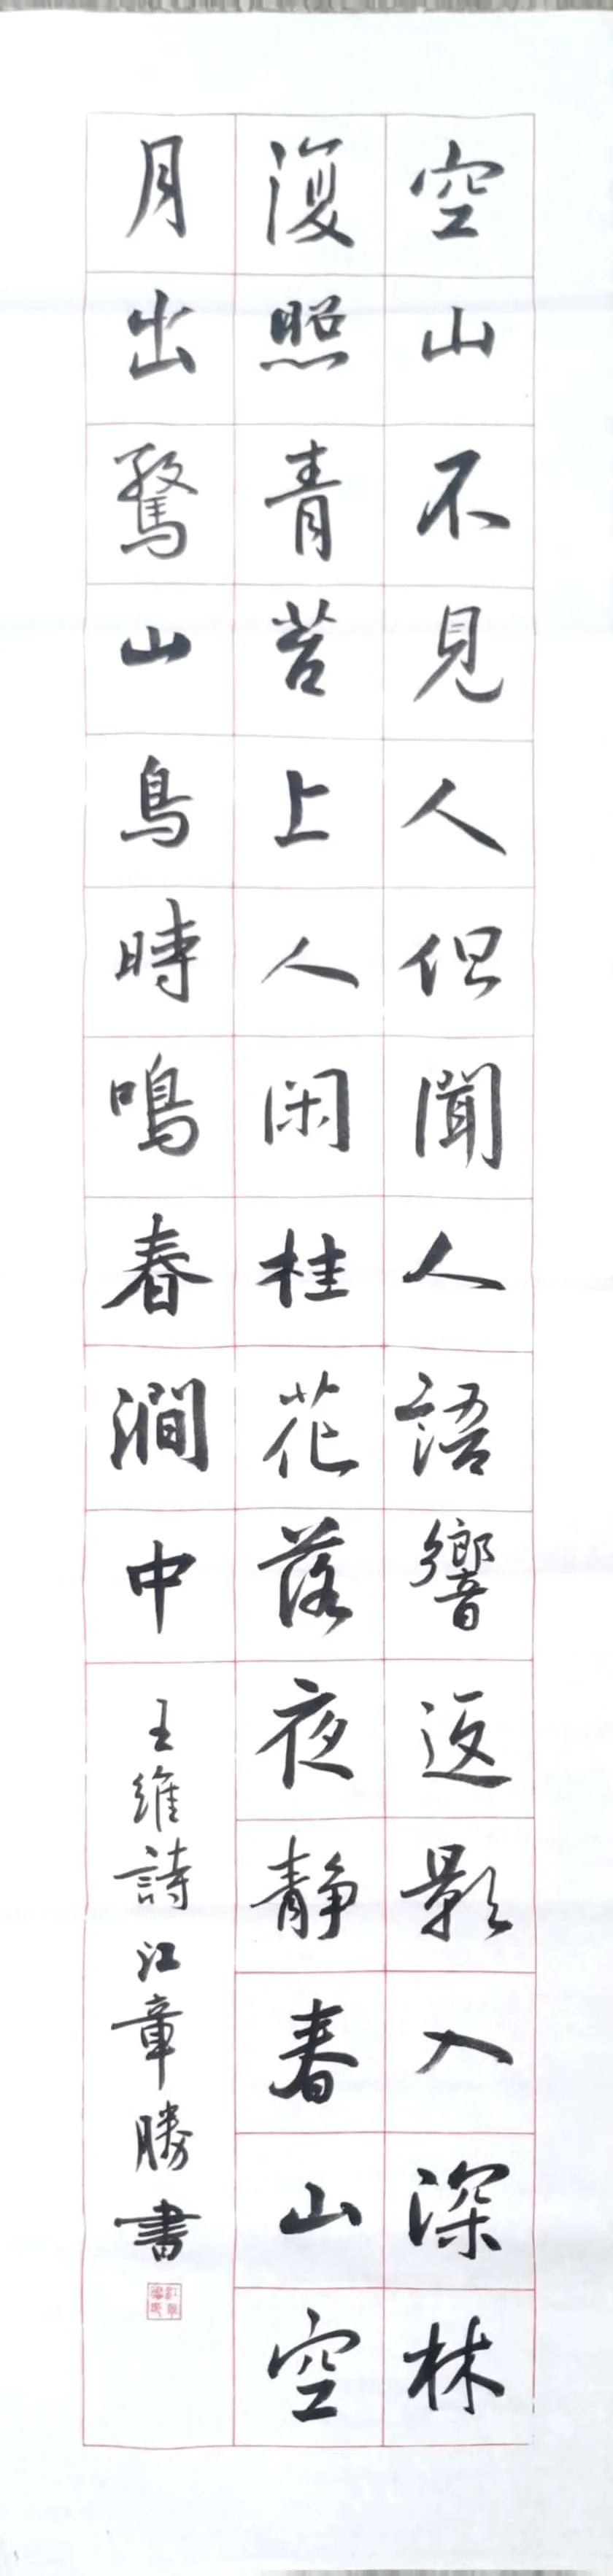 空山不見人但聞人語響返影入深林
復照青苔上人閑桂花落夜静春山空
月出驚山鳥時鳴春澗中
王維詩江章勝書